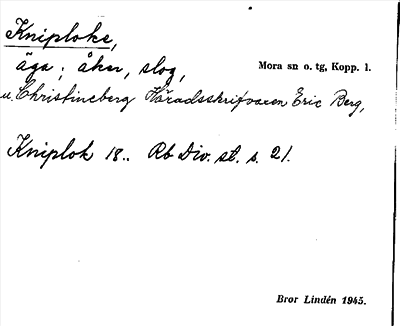 Kniploke,
äga; åker, slog, Mora sn o. tg, Kopp. l.
u. Christineberg Häradsskrifvaren Eric Berg,
Kniplok 18.. Rb Div. st. s. 21.
Bror Lindén 1945.